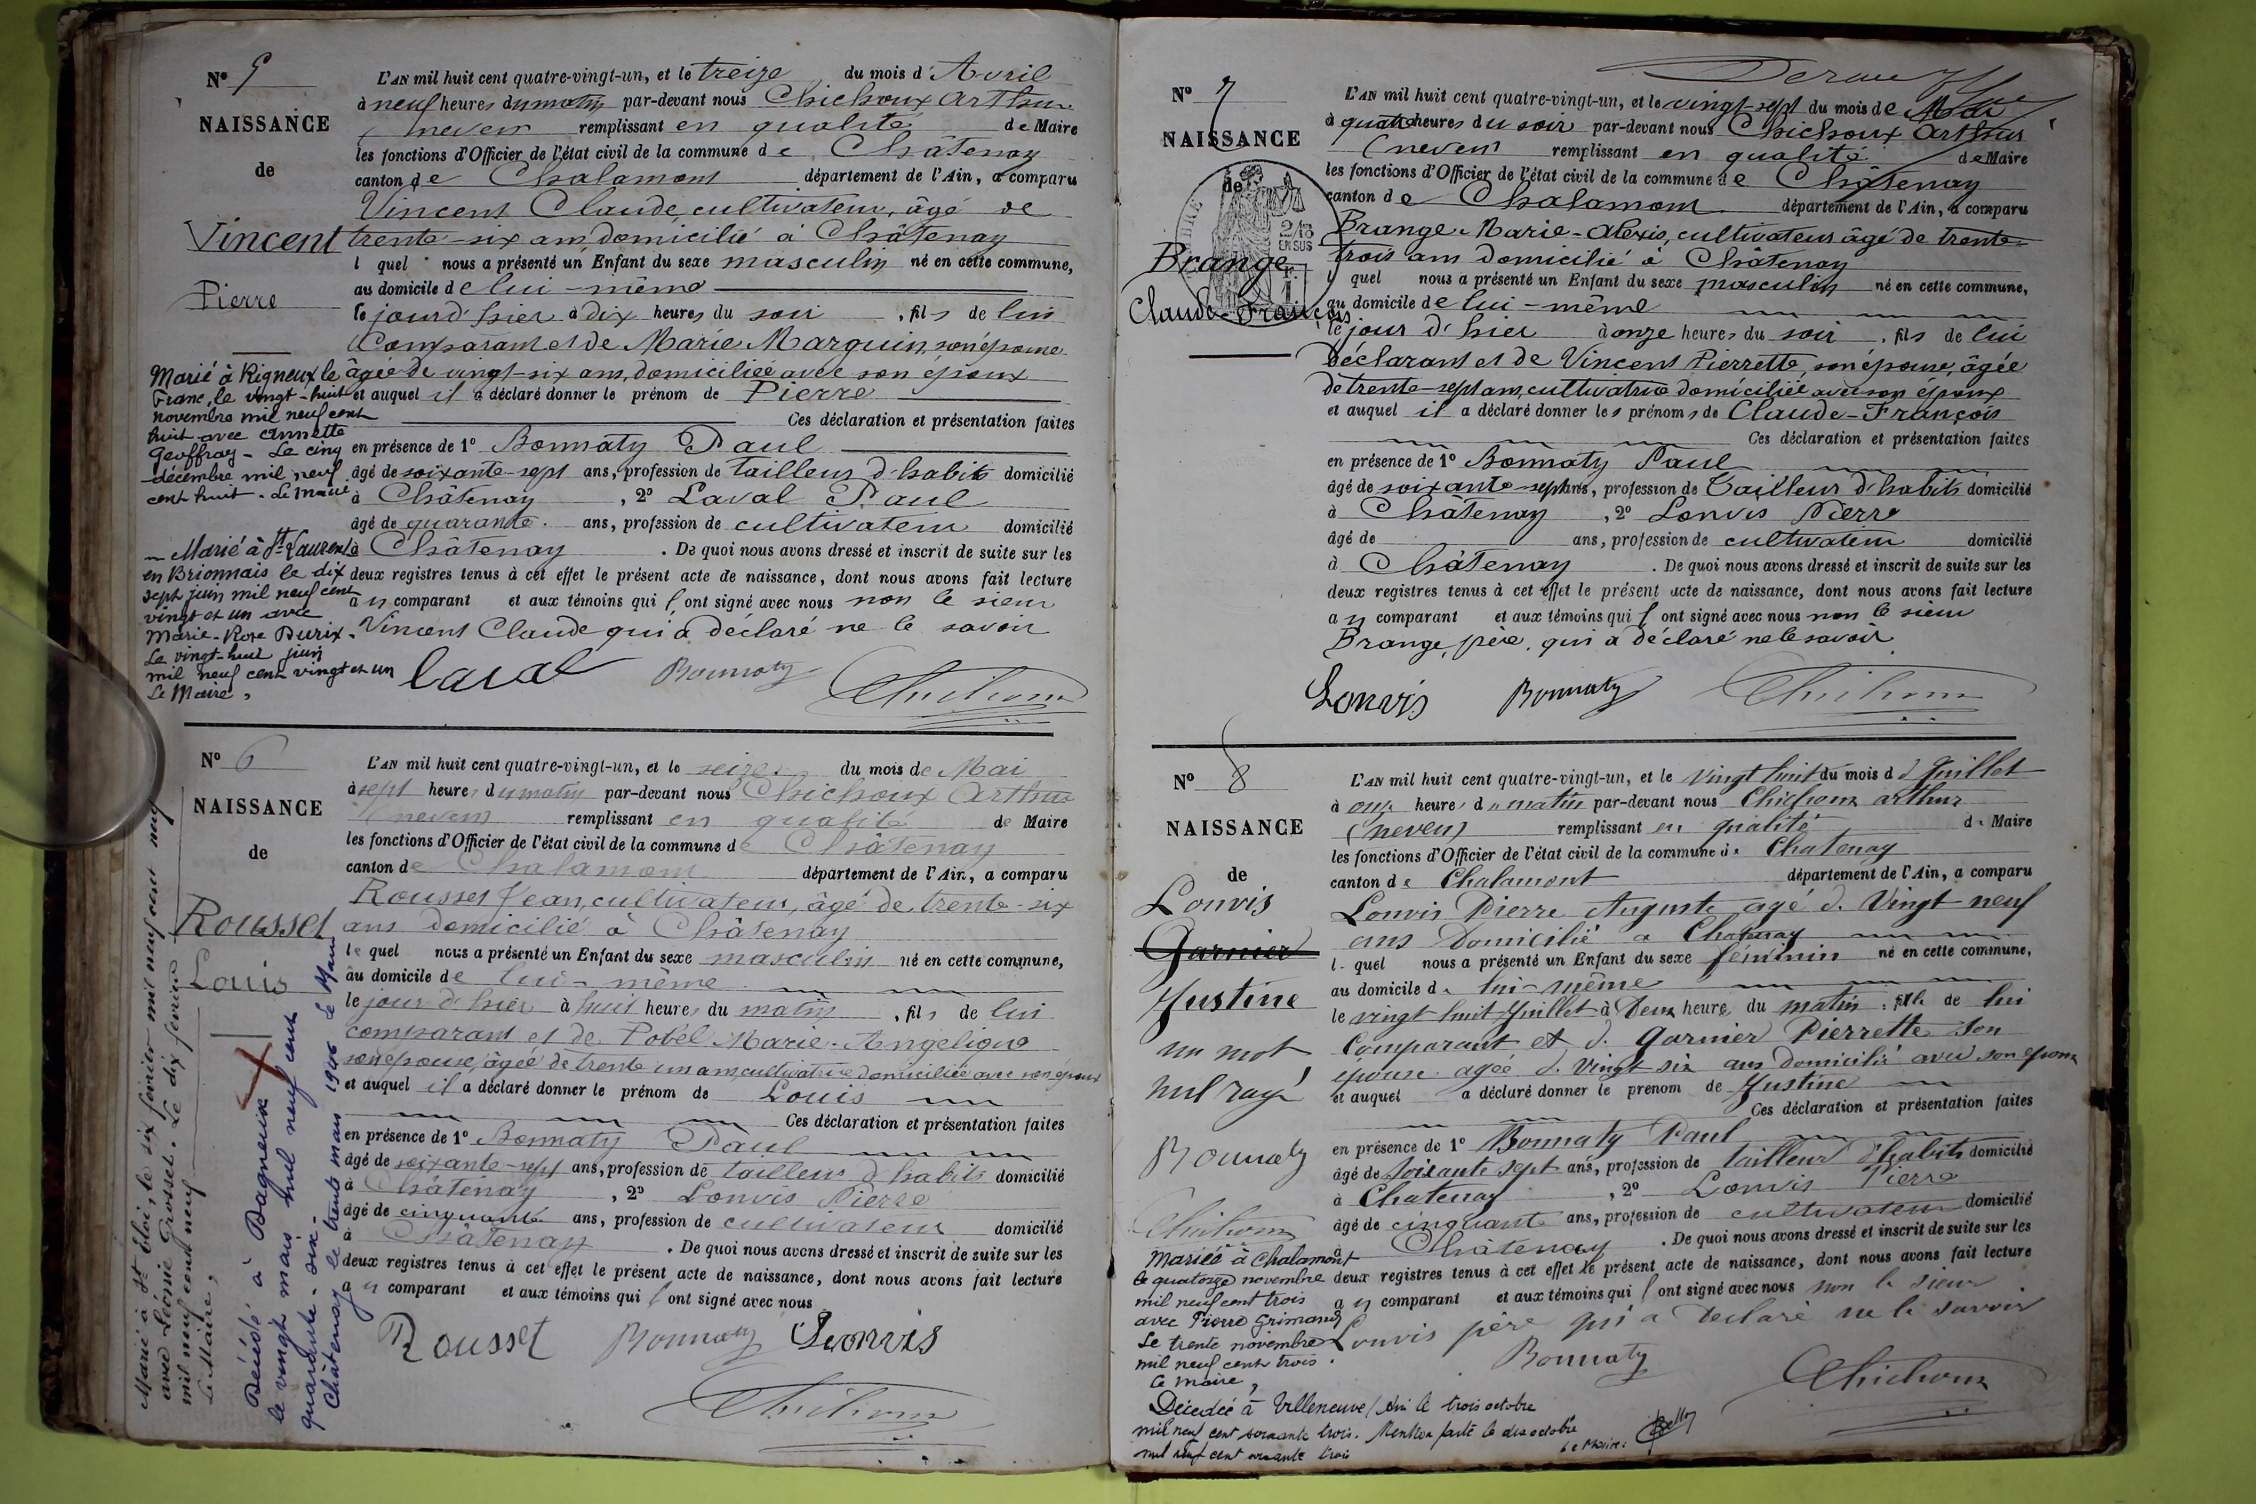 N° 5
NAISSANCE
de
Vincent
Pierre
L'AN mil huit cent quatre-vingt-un, et le treize du mois d'Avril
à neuf heures du matin par-devant nous Chichoux Arthur
(neveu) remplissant en qualité de Maire
les fonctions d'Officier de l'état civil de la commune de Châtenay
canton de Chalamont département de l'Ain, a comparu
Vincent Claude, cultivateur, âgé de
trente-six ans, domicilié à Châtenay
lequel nous a présenté un Enfant du sexe masculin né en cette commune,
au domicile de lui-même
le jour d'hier à dix heures du soir, fils de lui
Comparant et de Marie Marguin, son épouse
âgée de vingt-six ans, domiciliée avec son époux
et auquel il a déclaré donner le prénom de Pierre
Ces déclaration et présentation faites
en présence de 1° Bonnaty Paul
âgé de soixante-sept ans, profession de tailleur d'habits domicilié
à Châtenay, 2° Laval Paul
âgé de quarante ans, profession de cultivateur domicilié
à Châtenay. De quoi nous avons dressé et inscrit de suite sur les
deux registres tenus à cet effet le présent acte de naissance, dont nous avons fait lecture
au comparant et aux témoins qui l'ont signé avec nous non le sieur
Vincent Claude qui a déclaré ne le savoir
Laval Bonnaty Chichoux
Marié à Rigneux le
Franc, le vingt-huit
novembre mil neuf cent
huit avec Annette
Geoffray - Le cinq
décembre mil neuf
cent huit. Le Maire
Marié à St Laurent
en Brionnais le dix
sept juin mil neuf cent
vingt et un avec
Marie-Rose Durix.
Le vingt-huit juin
mil neuf cent vingt et un
Le Maire,
N° 6
NAISSANCE
de
Rousset
Louis
L'AN mil huit cent quatre-vingt-un, et le seize du mois de Mai
à sept heures du matin par-devant nous Chichoux Arthur
(neveu) remplissant en qualité de Maire
les fonctions d'Officier de l'état civil de la commune de Châtenay
canton de Chalamont département de l'Ain, a comparu
Rousset Jean, cultivateur, âgé de trente-six
ans domicilié à Châtenay
lequel nous a présenté un Enfant du sexe masculin né en cette commune,
au domicile de lui-même
le jour d'hier à huit heures du matin, fils de lui
comparant et de Pobel Marie-Angelique
son épouse, âgée de trente un ans, cultivatrice domiciliée avec son époux
et auquel il a déclaré donner le prénom de Louis
Ces déclaration et présentation faites
en présence de 1° Bonnaty Paul
âgé de soixante-sept ans, profession de tailleur d'habits domicilié
à Châtenay, 2° Louvis Pierre
âgé de cinquante ans, profession de cultivateur domicilié
à Châtenay. De quoi nous avons dressé et inscrit de suite sur les
deux registres tenus à cet effet le présent acte de naissance, dont nous avons fait lecture
au comparant et aux témoins qui l'ont signé avec nous
Rousset Bonnaty Louvis
Chichoux
Marié à St Eloi, le six février mil neuf cent neuf
avec Léonie Trosset. Le dix février
mil neuf cent neuf
Le Maire,
Décédé à Bagneux
le vingt mars mil neuf cent
quarante-six -
Châtenay le trente mars 1946 Le Maire
N° 7
NAISSANCE
de
Brange
Claude-François
L'AN mil huit cent quatre-vingt-un, et le vingt-sept du mois de Mai
à quatre heures du soir par-devant nous Chichoux Arthur
(neveu) remplissant en qualité de Maire
les fonctions d'Officier de l'état civil de la commune de Châtenay
canton de Chalamont département de l'Ain, a comparu
Brange Marie-Alexis, cultivateur âgé de trente-
trois ans domicilié à Châtenay
lequel nous a présenté un Enfant du sexe masculin né en cette commune,
au domicile de lui-même
le jour d'hier à onze heures du soir, fils de lui
Déclarant et de Vincent Pierrette, son épouse, âgée
de trente-sept ans, cultivatrice domiciliée avec son époux
et auquel il a déclaré donner les prénoms de Claude-François
Ces déclaration et présentation faites
en présence de 1° Bonnaty Paul
âgé de soixante-sept ans, profession de Tailleur d'habits domicilié
à Châtenay, 2° Louvis Pierre
âgé de ans, profession de cultivateur domicilié
à Châtenay. De quoi nous avons dressé et inscrit de suite sur les
deux registres tenus à cet effet le présent acte de naissance, dont nous avons fait lecture
au comparant et aux témoins qui l'ont signé avec nous non le sieur
Brange, père, qui a déclaré ne le savoir
Louvis Bonnaty Chichoux
N° 8
NAISSANCE
de
Louvis
Garnier
Justine
un mot
nul rayé
Bonnaty
Chichoux
L'AN mil huit cent quatre-vingt-un, et le vingt huit du mois de Juillet
à onze heures du matin par-devant nous Chichoux arthur
(neveu) remplissant en qualité de Maire
les fonctions d'Officier de l'état civil de la commune de Chatenay
canton de Chalamont département de l'Ain, a comparu
Louvis Pierre Auguste agé de Vingt neuf
ans Domicilié a Chatenay
lequel nous a présenté un Enfant du sexe féminin né en cette commune,
au domicile de lui-même
le vingt huit Juillet à Deux heures du matin, fille de lui
Comparant et de Garnier Pierrette son
epouse agée de vingt six ans domicilié avec son epoux
et auquel a déclaré donner le prénom de Justine
Ces déclaration et présentation faites
en présence de 1° Bonnaty Paul
âgé de soixante sept ans, profession de tailleur d'habits domicilié
à Chatenay, 2° Louvis Pierre
âgé de cinquante ans, profession de cultivateur domicilié
à Châtenay. De quoi nous avons dressé et inscrit de suite sur les
deux registres tenus à cet effet le présent acte de naissance, dont nous avons fait lecture
au comparant et aux témoins qui l'ont signé avec nous non le sieur
Louvis père qui a Declaré ne le savoir
Bonnaty Chichoux
Mariée à Chalamont
le quatorze novembre
mil neuf cent trois
avec Pierre Grimand
Le trente novembre
mil neuf cent trois.
Le Maire,
Décédée à Villeneuve/Ain le trois octobre
mil neuf cent soixante trois. Mention faite le dix octobre
mil neuf cent soixante trois
Le Maire: